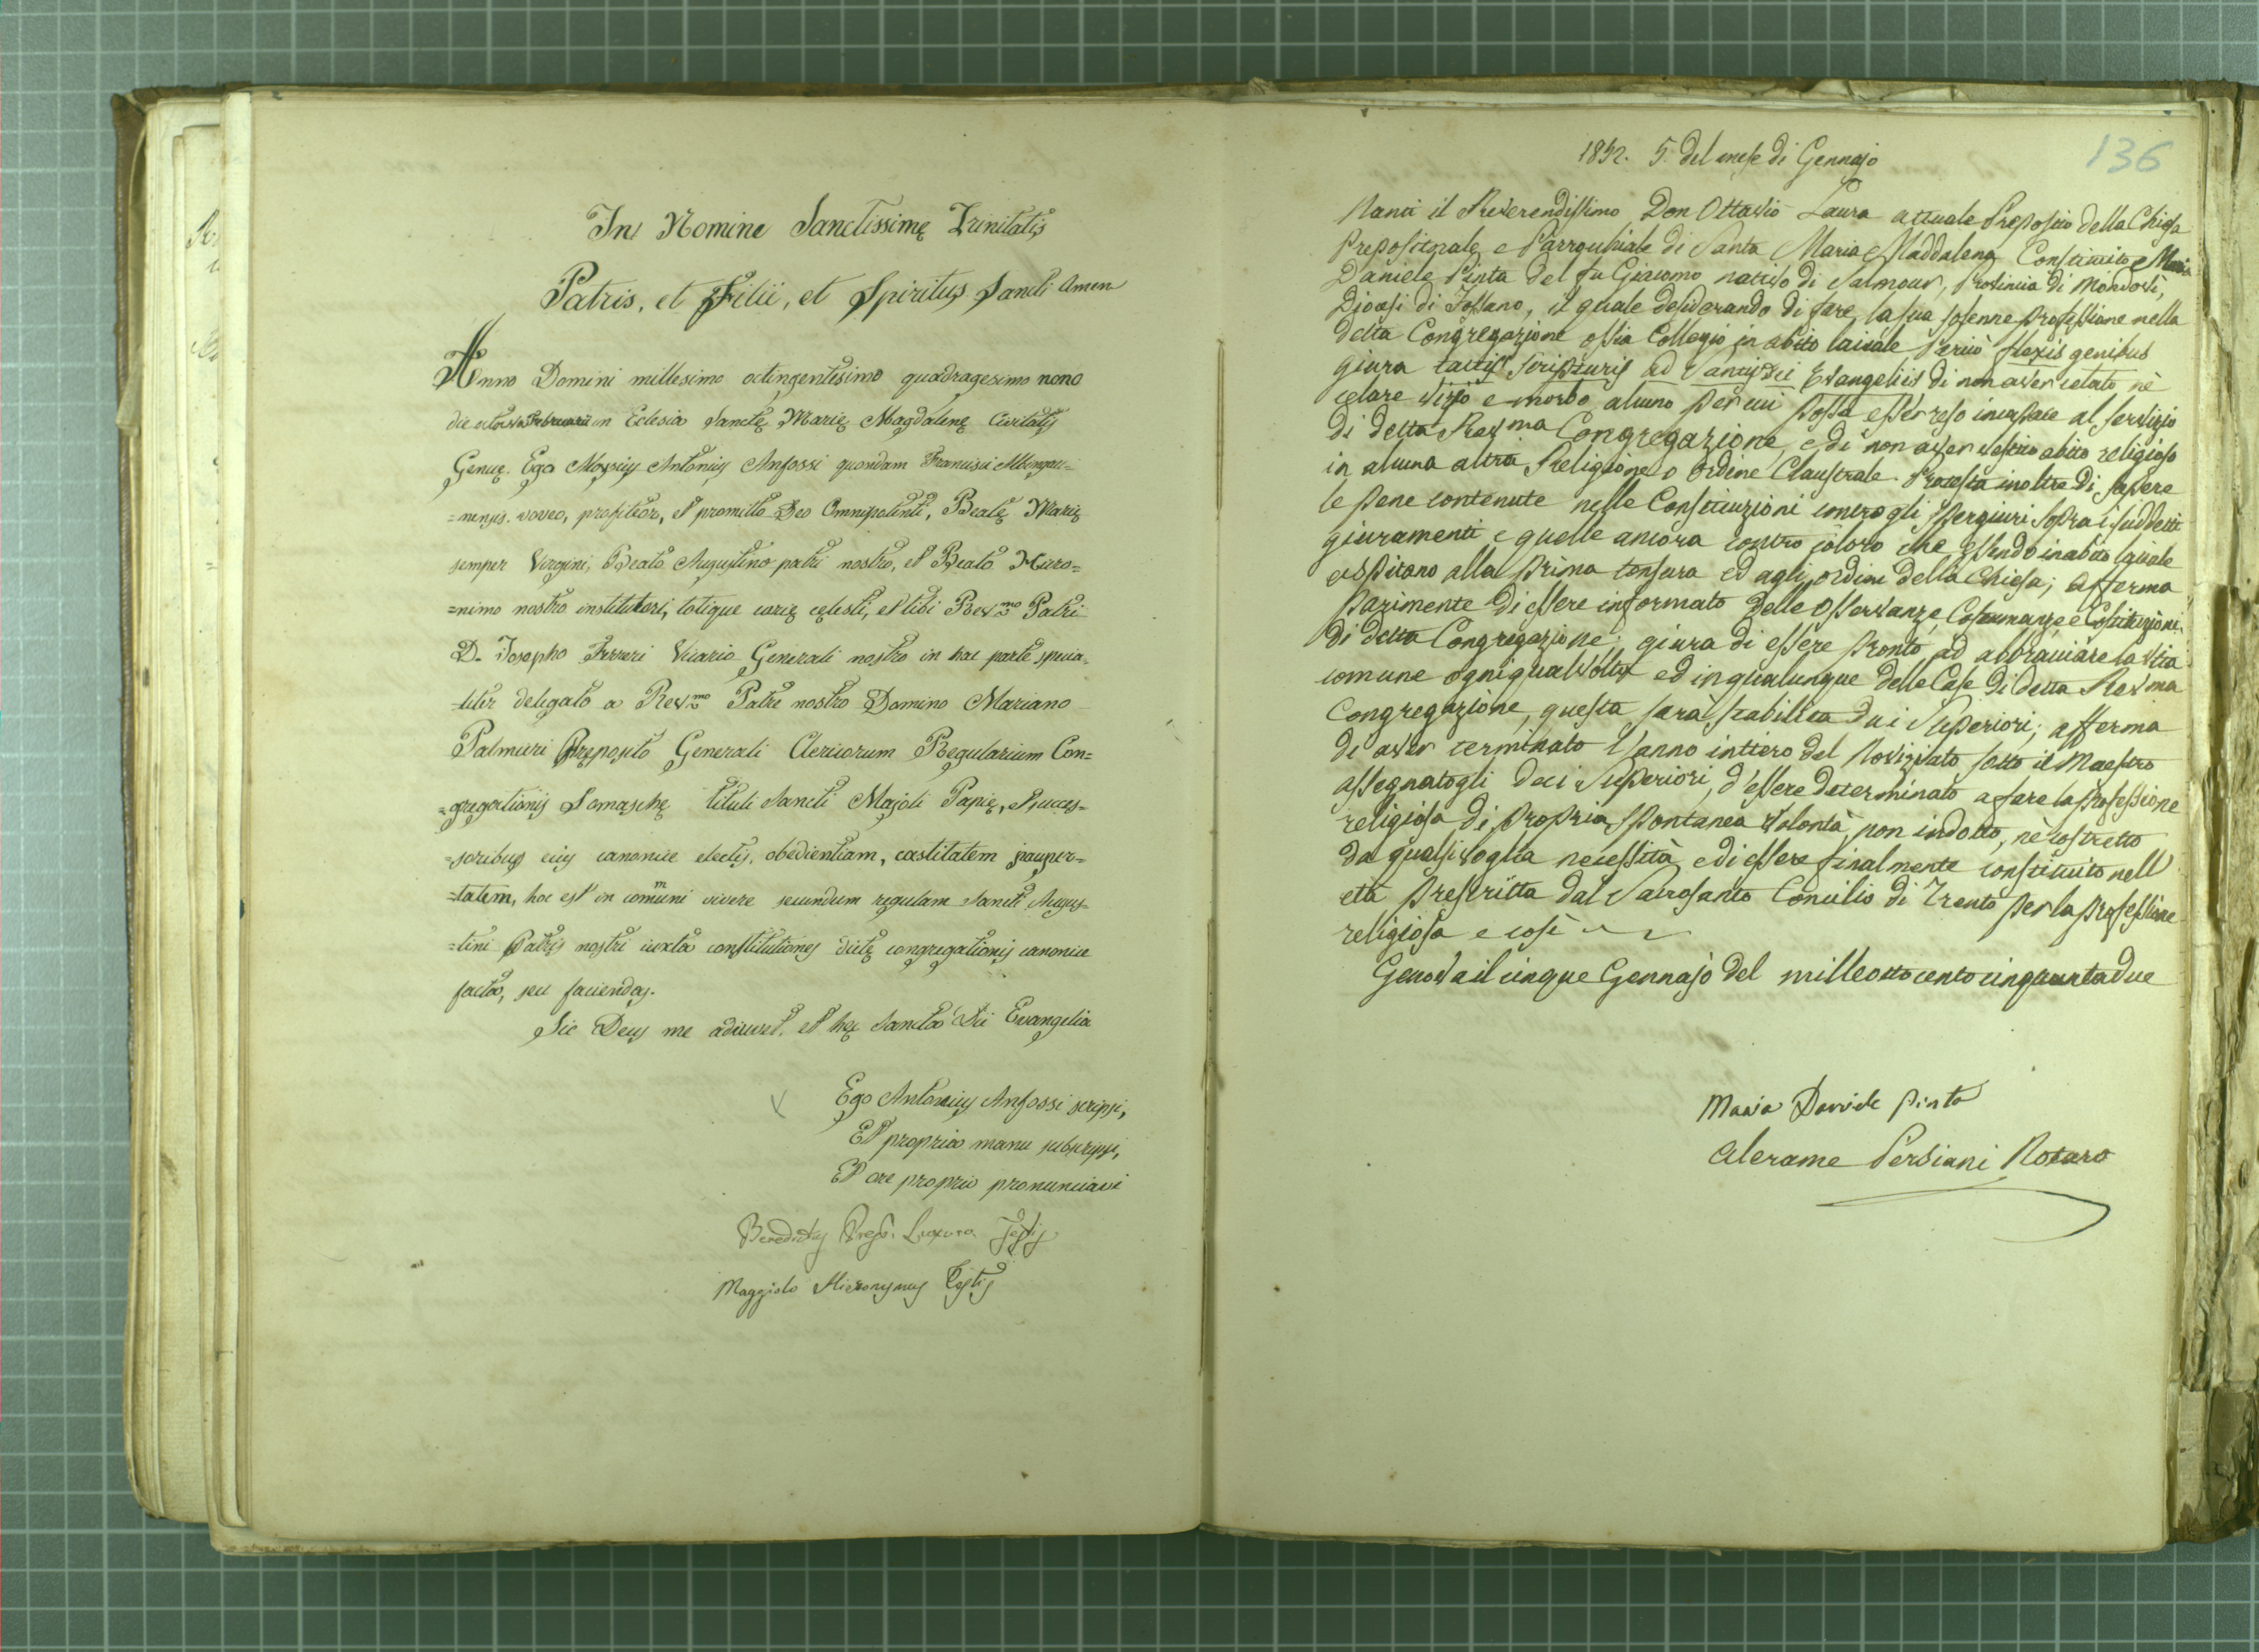 In Nomine Sanctissimę Trinitatis
Patris, et Filii, et Spiritus Sancti Amen
Anno Domini millesimo octingentesimo quadragesimo nono
die octava Februarii in Eclesia Sanctę Marię Magdalenę Civitatis
Genuę. Ego Antonius Anfossi quondam Francisci Albingau=
=nensis. voveo, profiteor, et promitto Deo Omnipotenti, Beatę Marię
semper Virgini, Beato Augustino patri nostro, et Beato Hiero=
=nimo nostro institutori, totique curię cęlesti, et tibi Revmo Patri
D. Josepho Ferreri Vicario Generali nostro in hac parte specia=
-liter delegato a Revmo Patre nostro Domino Mariano
Palmieri Pręposito Generali Clericorum Regularium Con=
=gregationis Somaschę tituli Sancti Majoli Papię, Succes=
=soribus eius canonice electis, obedientiam, castitatem pauper=
=tatem, hoc est in comuni vivere secundum regulam Sancti Augus=
=tini Patris nostri iuxta constitutiones dictę congregationis canonice
factas, seu faciendas.
Sic Deus me adiuvet, et hęc Sancta Dei Evangelia
Ego Antonius Anfossi scripsi,
Et propria manu subscripsi,
Et ore proprio pronunciavi
Benedictus Luxuro Testis
Maggiolo Hieronymus Testis
136
1852. 5. del mese di Gennajo
Nanti il Reverendissimo Don Ottavio Laura attuale Preposito della Chiesa
Prepositorale e Parrochiale di Santa Maria Maddalena Constituito Maria
Daniele Pinta del fu Giacomo nativo di Salmour, Provincia di Mondovì,
Diocesi di Fossano, il quale desiderando di fare la sua solenne professione nella
detta Congregazione ossia Collegio in abito laicale perciò flexis genibus
giura tactis Scripturis ad Sanctis Dei Evangeliis di non aver celato nè
celare vizio e morbo alcuno per cui possa esser reso incapace al servizio
di detta Revma Congregazione, e di non aver vestito abito religioso
in alcuna altra Religione o Ordine Claustrale. Protesta inoltre di sapere
le pene contenute nelle Constituzioni contro gli spergiuri sopra i suddetti
giuramenti e quelle ancora contro coloro che essendo in abito laicale
aspirano alla prima tonsura ed agli ordini della Chiesa; afferma
parimente di essere informato delle Osservanze, Costumanze e Costituzioni
di detta Congregazione; giura di essere pronto ad abbracciare la vita
comune ogniqualvolta ed in qualunque delle Case di detta Revma
Congregazione, questa sarà stabilita dai Superiori; afferma
di aver terminato l'anno intiero del Noviziato sotto il Maestro
assegnatogli dai Superiori, d'essere determinato a fare la professione
religiosa di propria spontanea volontà, non indotto, nè costretto
da qualsivoglia necessità e di essere finalmente constituito nell
età prescritta dal Sacrosanto Concilio di Trento per la professione
religiosa e così
Genova il cinque Gennajo del milleottocentocinquantadue
Maria Davide Pinta
Alerame Persiani Notaro